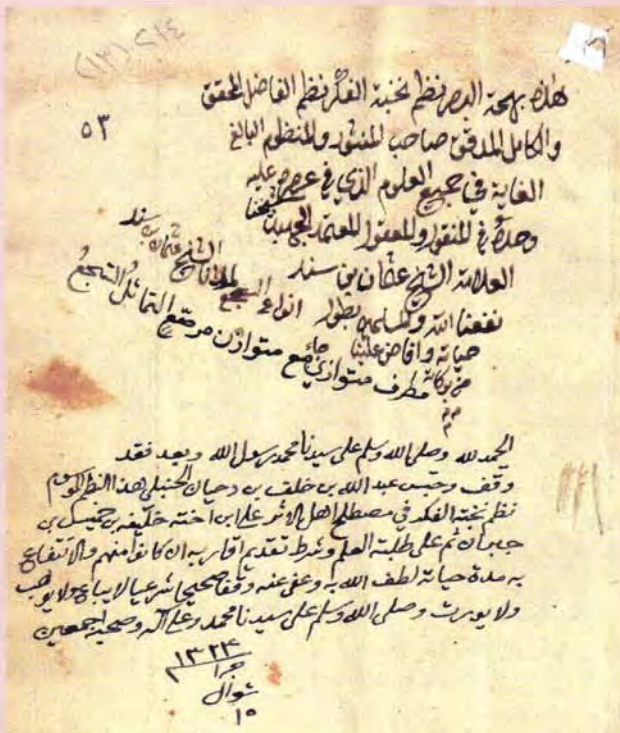 ٢١٤ (١٣)
٥٣
هذه بهجة البصر نظم نخبة الفكر نظم الفاضل المحقق
والكامل المدقق صاحب المنثور والمنظوم البالغ
الغاية في جميع العلوم الذي في عصره عليه
وحده في المنقول والمعقول المعتمد شيخنا
العلامة الشيخ عثمان بن سند
الشيخ عثمان بن سند
نفعنا الله والمسلمين بطول
حياته وافاض علينا
من بركاته
انواع السجع
مطرف متوازي مع متوازن مرصع التماثل
الحمد لله وصلى الله وسلم على سيدنا محمد رسول الله وبعد فقد
وقف وحبس عبد الله بن خلف بن دحيان الحنبلي هذا النظم الموسوم
نظم نخبة الفكر في مصطلح اهل الاثر على ابن اخته خليفه بن خميس بن
جبران ثم على طلبة العلم وشرط تقديم اقاربه ان كانوا منهم والانتفاع
به مدة حياته لطف الله به وعفى عنه وقفا صحيحا شرعيا لا يباع ولا يوهب
ولا يورث وصلى الله وسلم على سيدنا محمد وعلى آله وصحبه اجمعين
١٣٢٤
شوال
١٥